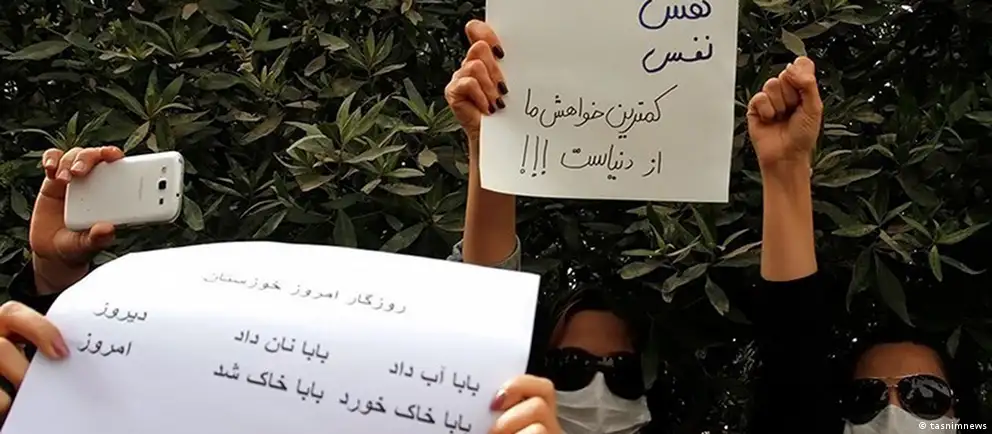 نفس
نفس
کمترین خواهش ما
از دنیاست !!!
روزگار امروز خوزستان
دیروز بابا نان داد بابا آب داد
امروز بابا خاک شد بابا خاک خورد
SAMSUNG
tasnimnews